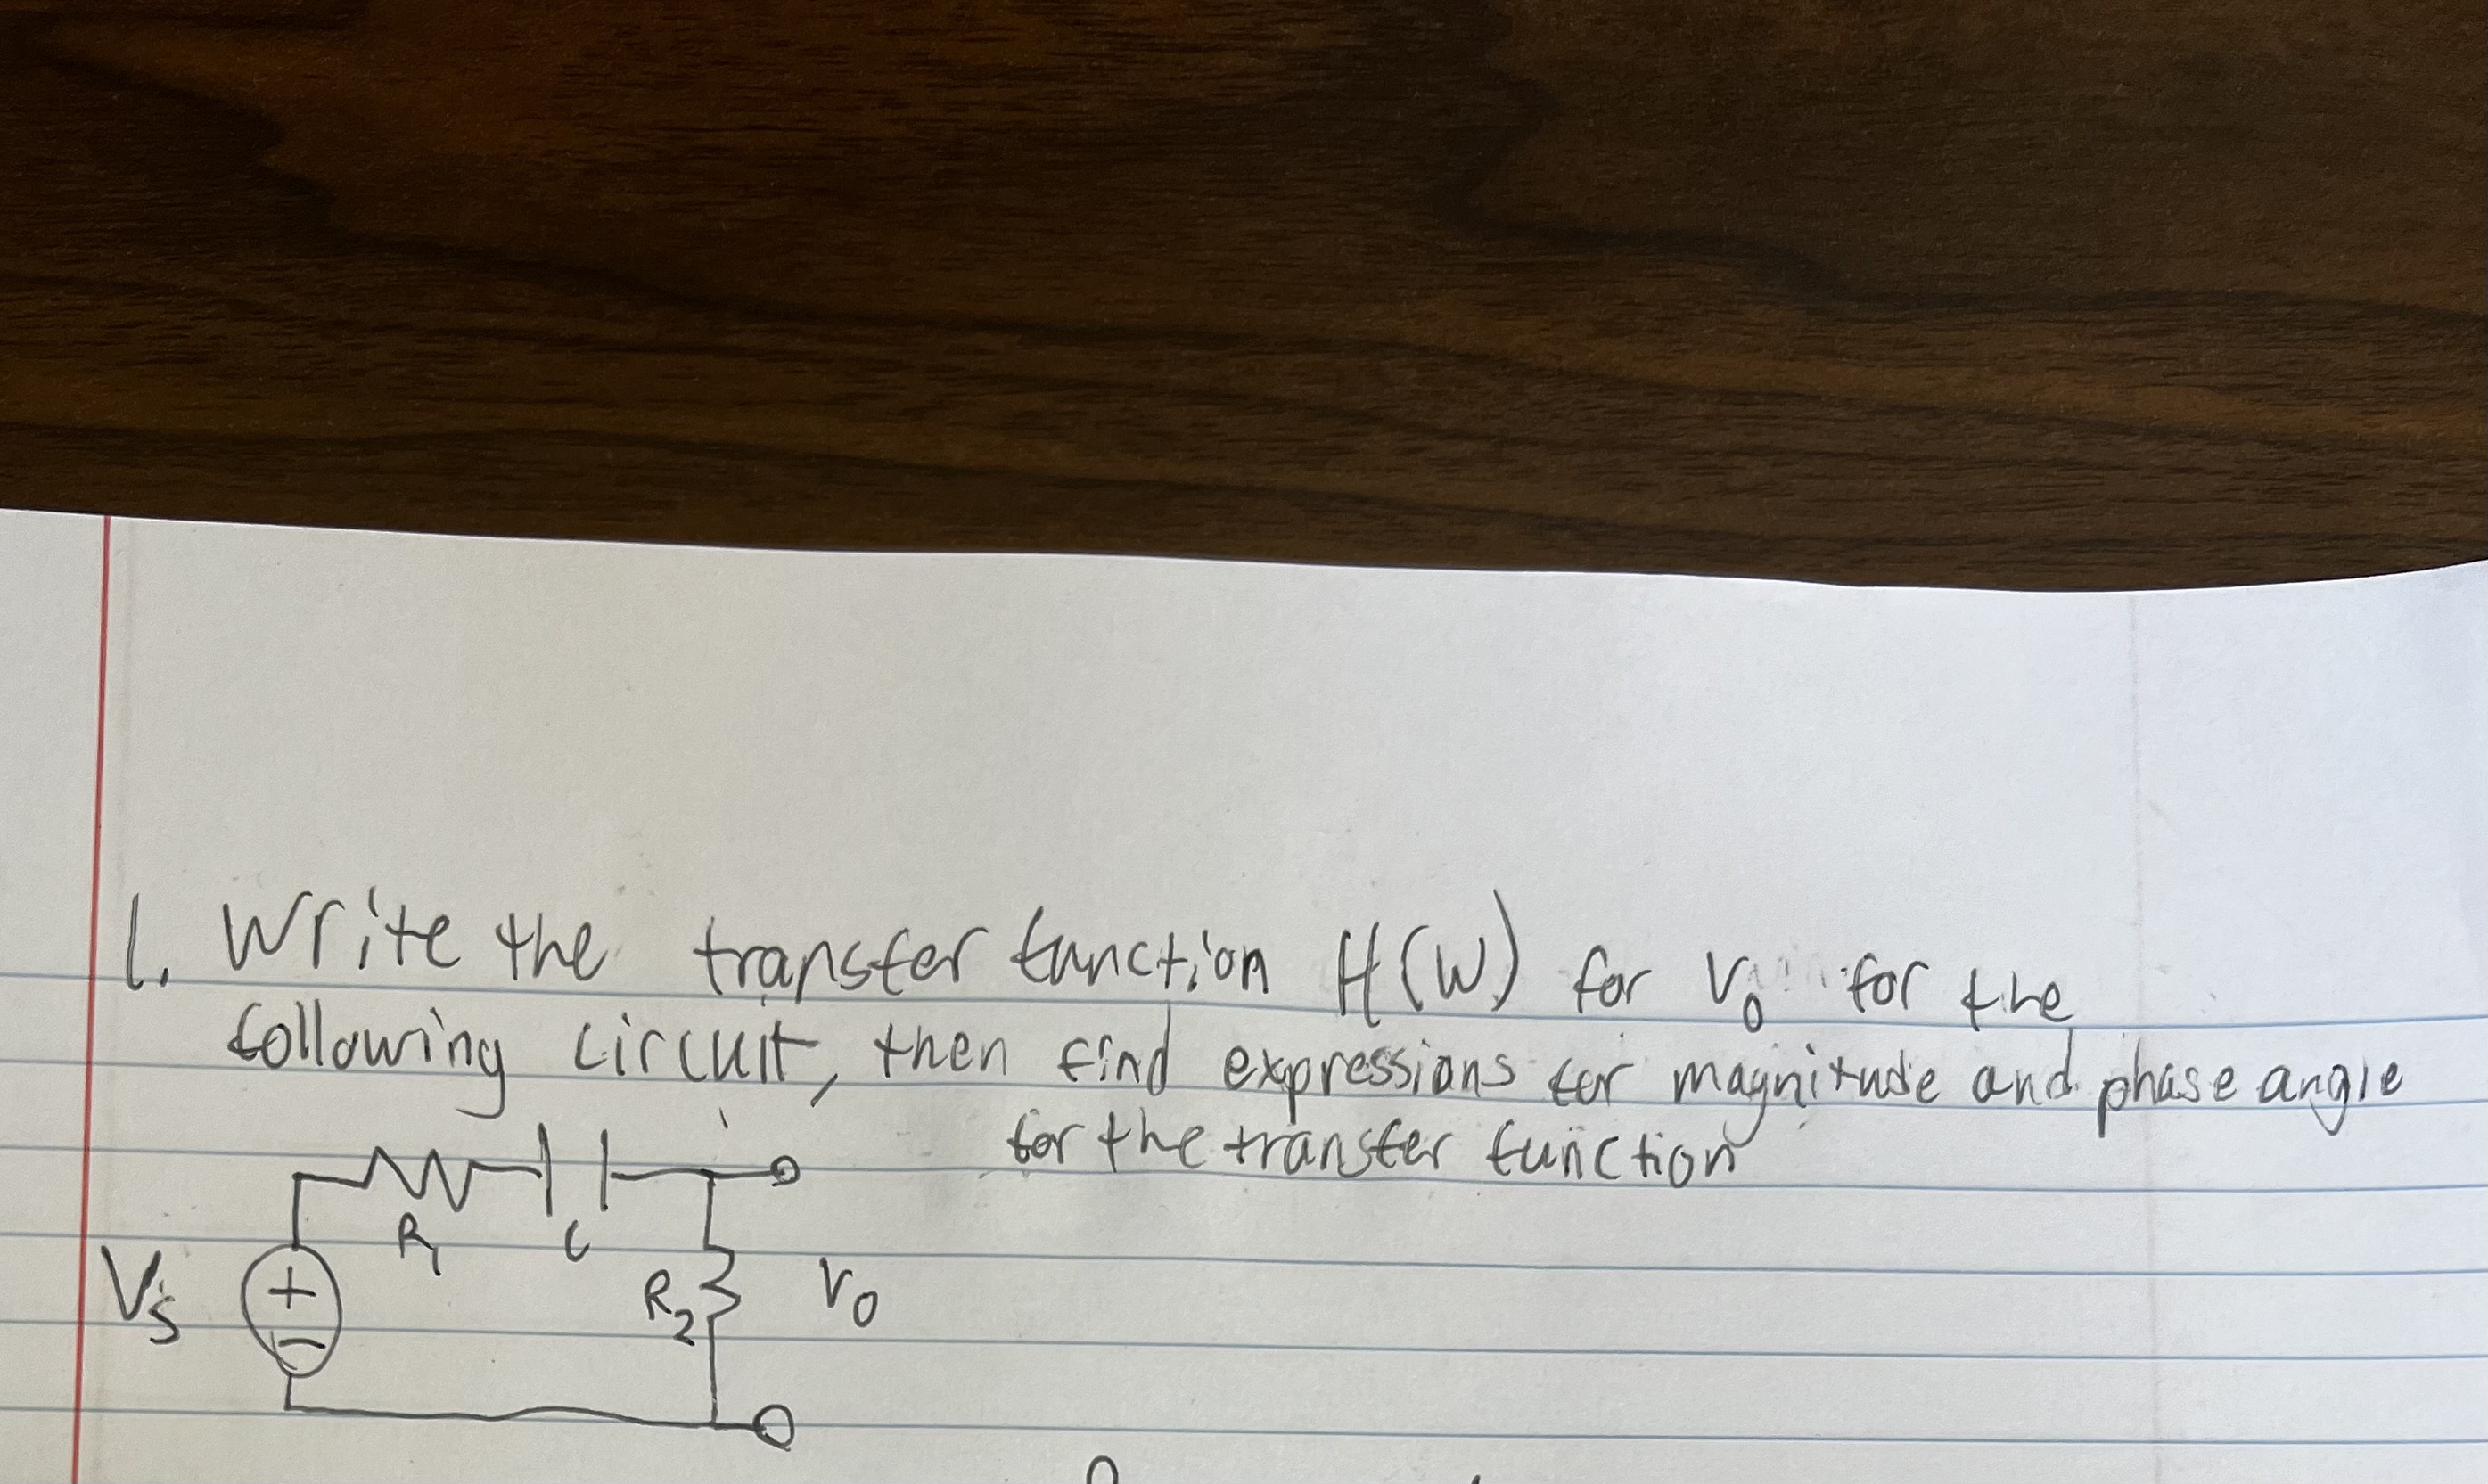 1. Write the transfer function H(W) for V0 for the
following circuit, then find expressions for magnitude and phase angle
for the transfer function
R1 C
Vs + − R2 V0